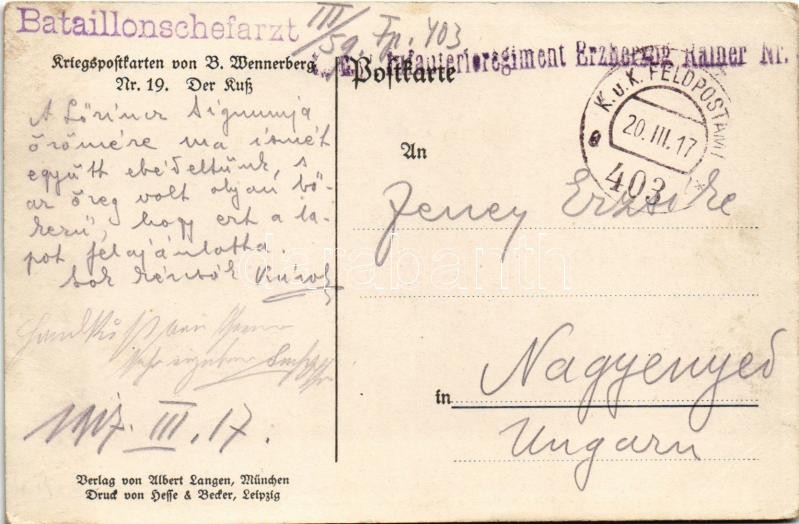 Bataillonschefarzt
III/59. Fp. 403
Infanterieregiment Erzherzog Rainer Nr.
Kriegspostkarten von B. Wennerberg
Nr. 19. Der Kuß
Postkarte
K.u.K. FELDPOSTAMT
20. III. 17
a
403
*
A Lőrincz Zsigmondja
örömére ma ismét
együtt ebédeltünk, s
az öreg volt olyan bő-
kezű, hogy ezt a la-
pot felajánlotta.
Sok kézcsók
Handkuß
1917. III. 17.
An
Jeney Erzsike
in
Nagyenyed
Ungarn
Verlag von Albert Langen, München
Druck von Hesse & Becker, Leipzig
darabanth